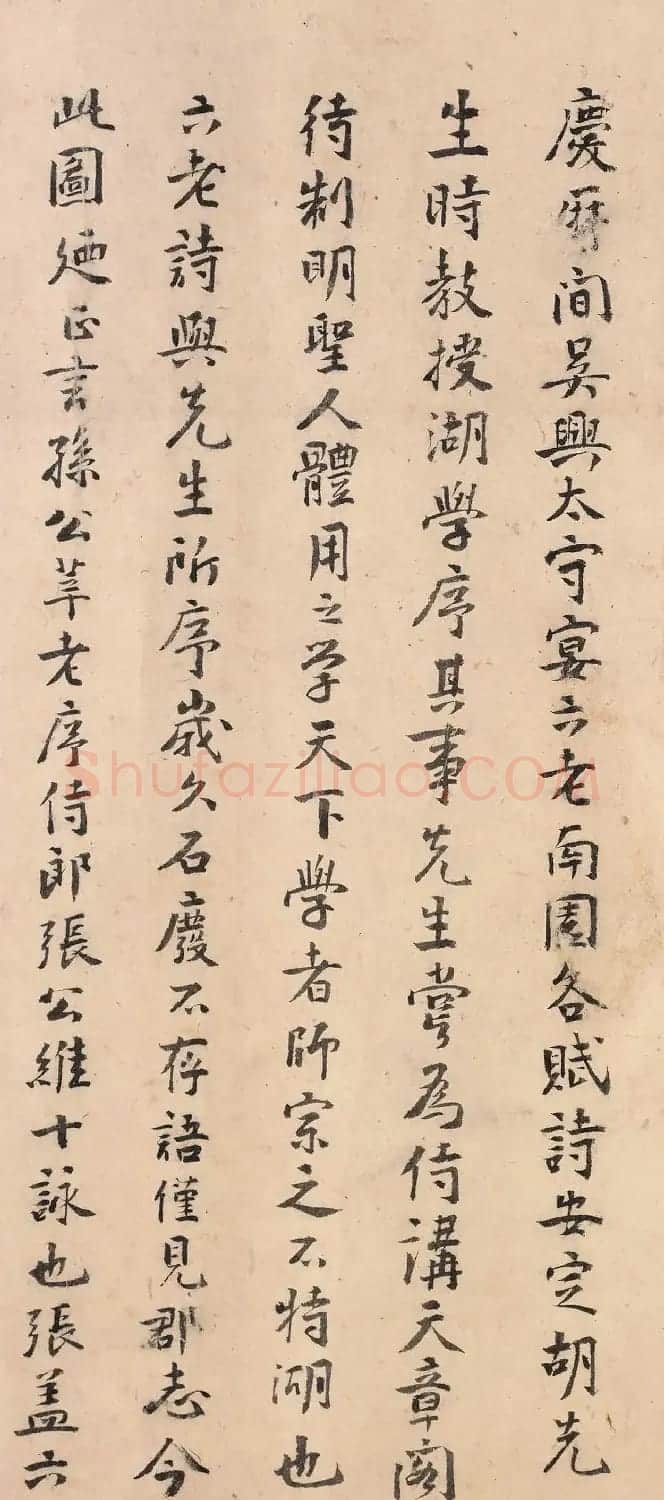 慶曆間吳興太守宴六老南園各賦詩安定胡先
生時教授湖學序其事先生嘗為侍講天章閣
待制明聖人體用之学天下學者師宗之不特湖也
六老詩與先生所序歲久石廢不存語僅見郡志今
此圖廼正言孫公莘老序侍郎張公維十詠也張蓋六
Shufaziliao.COM